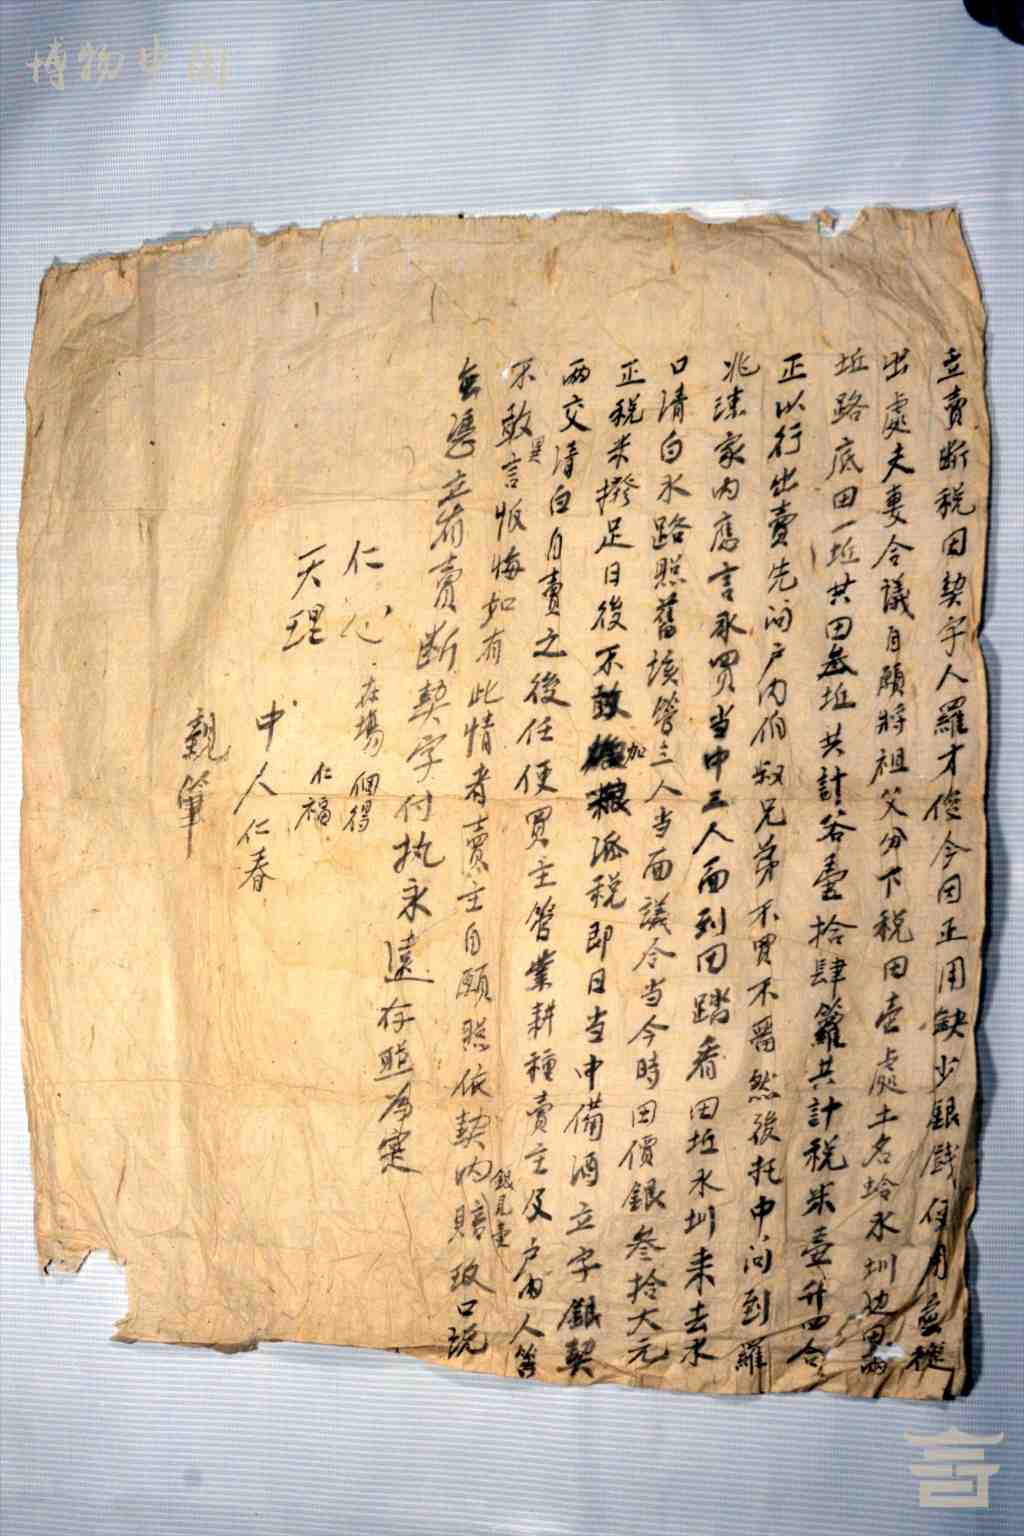 博物中国
立賣断税田契字人羅才俊今因正用缺少銀戲使用無從
出處夫妻合議自願將祖父分下税田壹處土名坽水圳边田兩
坵路底田一坵共田叁坵共計谷壹拾肆籮共計税米壹升四合
正以行出賣先问户内伯叔兄弟不買不啚然後托中问到羅
兆 家内應言承買当中三人面到田踏看田坵水圳来去水
口清白水路照舊 管三人当面議令当今時田價銀叁拾大元
正税米撥足日後不敢加 派税即日当中備酒立字銀契
兩交清白自賣之後任便買主管業耕種賣主及户内人等
不敢異言恢悔如有此情者賣主自願照依契内銀見壹賠 口说
無憑立有賣断契字付执永遠存照為定
仁心
天理
在場 個得
仁福
中人仁春
親筆